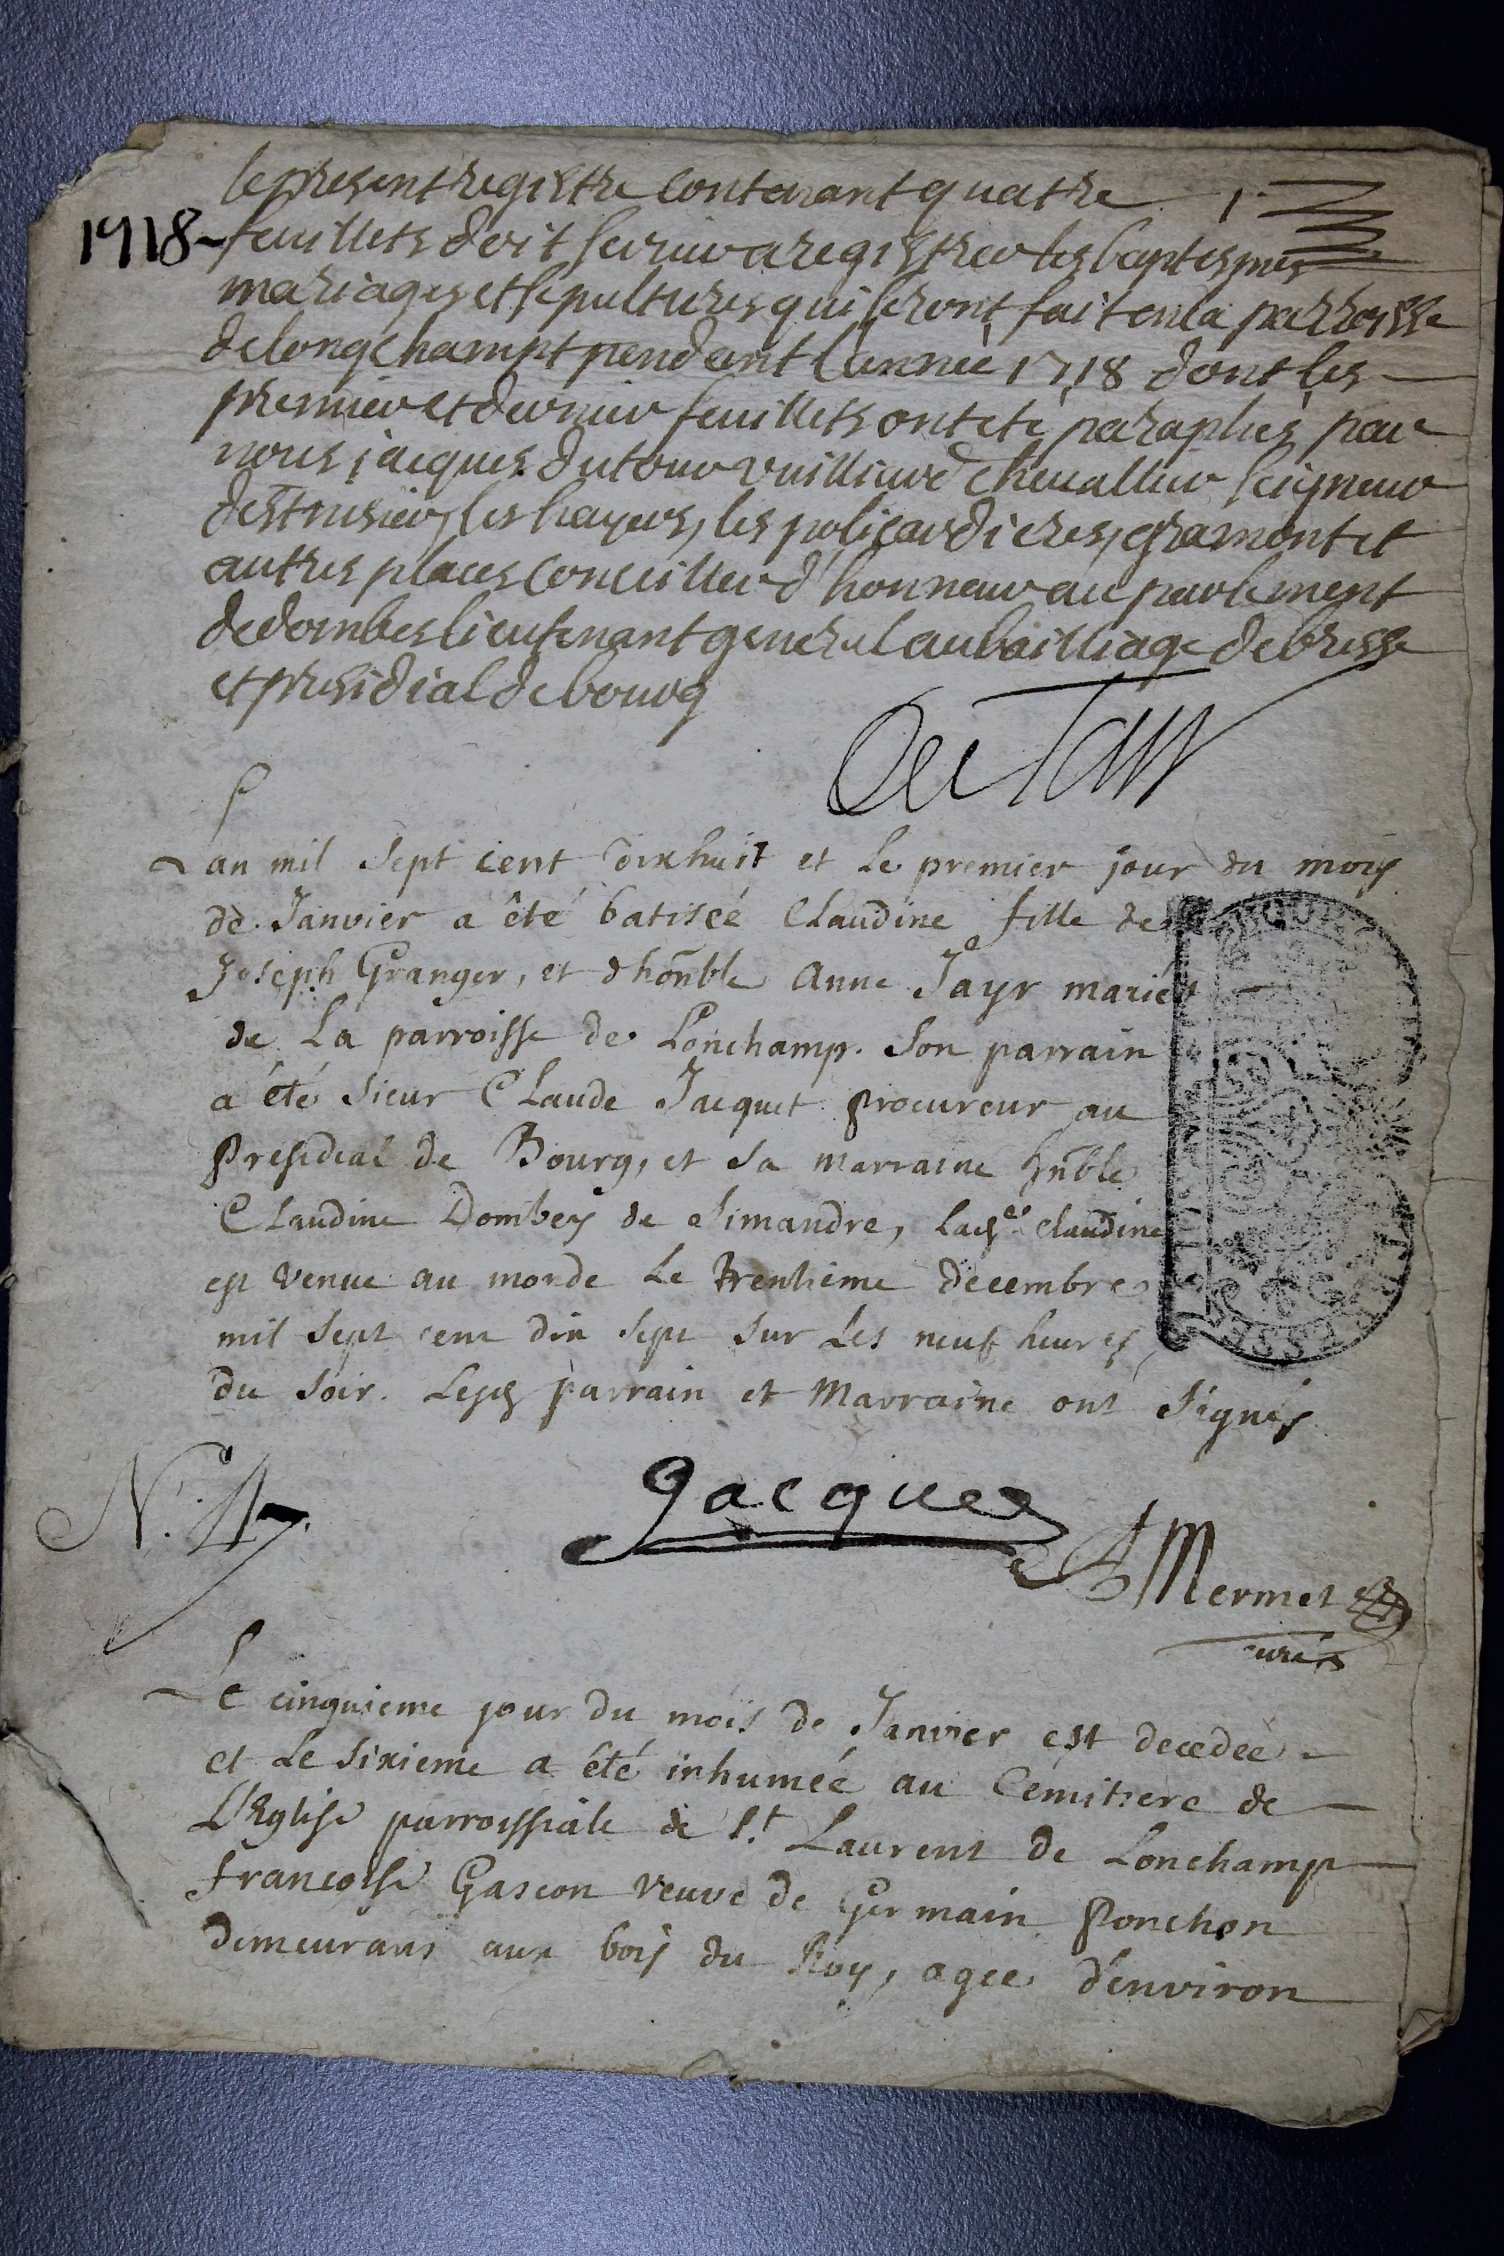 le present registre contenant quatre 1.
1718 feuillets doit servir a registrer les baptesmes
mariages et sepultures qui seront fait en la parroisse
de longchampt pendant l'année 1718 dont les
premier et dernier feuillets ont eté paraphés par
nous jacques dutour vuilliard chevallier seigneur
de les hayes, les policardieres, gramont et
autres places conseiller d'honneur au parlement
de dombes lieutenant general au bailliage de bresse
et presidial de bourg
DuTour
Lan mil sept cent dixhuit et le premier jour du mois
de Janvier a été batiseé Claudine fille de
Joseph Granger, et dhonble Anne Jayr mariés
de La parroisse de Lonchamp. Son parrain
a été sieur Claude Jacquet procureur au
Presidial de Bourg, et sa marraine hnble
Claudine Dombey de Simandre, ladte Claudine
est venue au monde le trentieme decembre
mil sept cent dix sept sur les neuf heures
du soir. Lesds parrain et Marraine ont signés
Jacquet
N. 47.
Mermet
curé
Le cinquieme jour du mois de Janvier est decedeé
et le sixieme a été inhumeé au Cemitiere de
L'Eglise parroissiale de St Laurent de Lonchamp
francoise Gascon veuve de Germain Ponchon
demeurans aux bois du Roy, agee d'environ